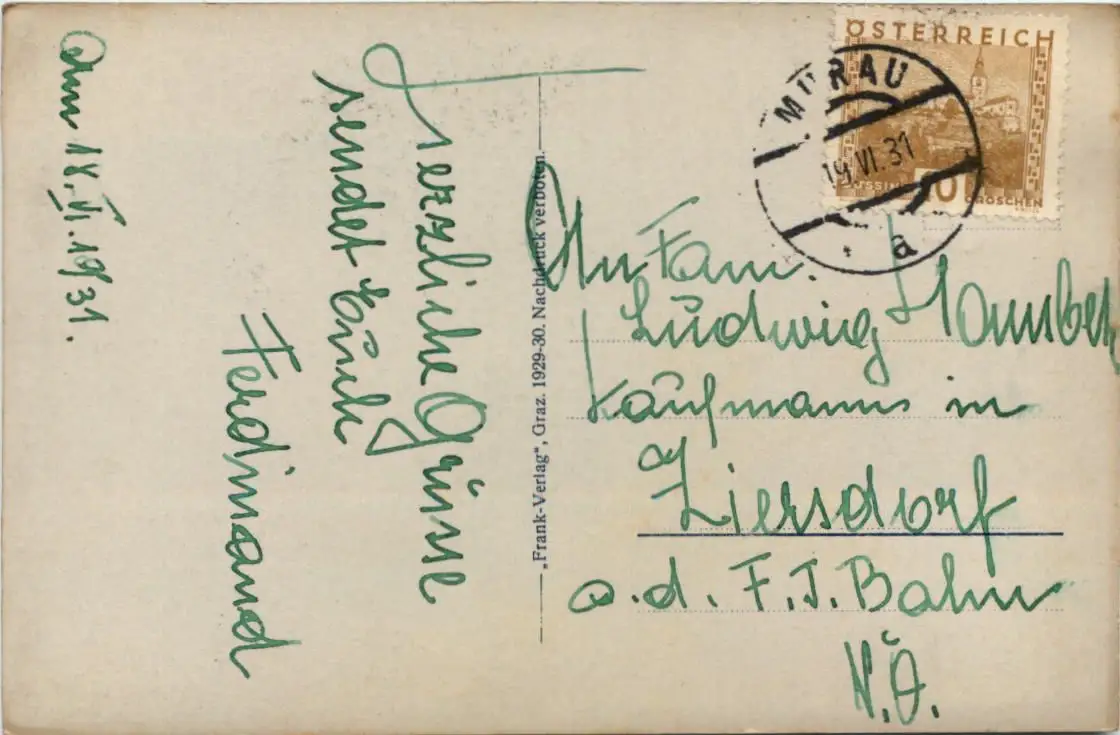 Am 18. VI. 1931.
Herzliche Grüsse
sendet Euch
Ferdinand
„Frank-Verlag“, Graz. 1929-30. Nachdruck verboten.
ÖSTERREICH
GROSCHEN
MURAU
19 VI. 31
a
An Fam.
Ludwig
Kaufmann in
Ziersdorf
a. d. F. J. Bahn
N. Ö.